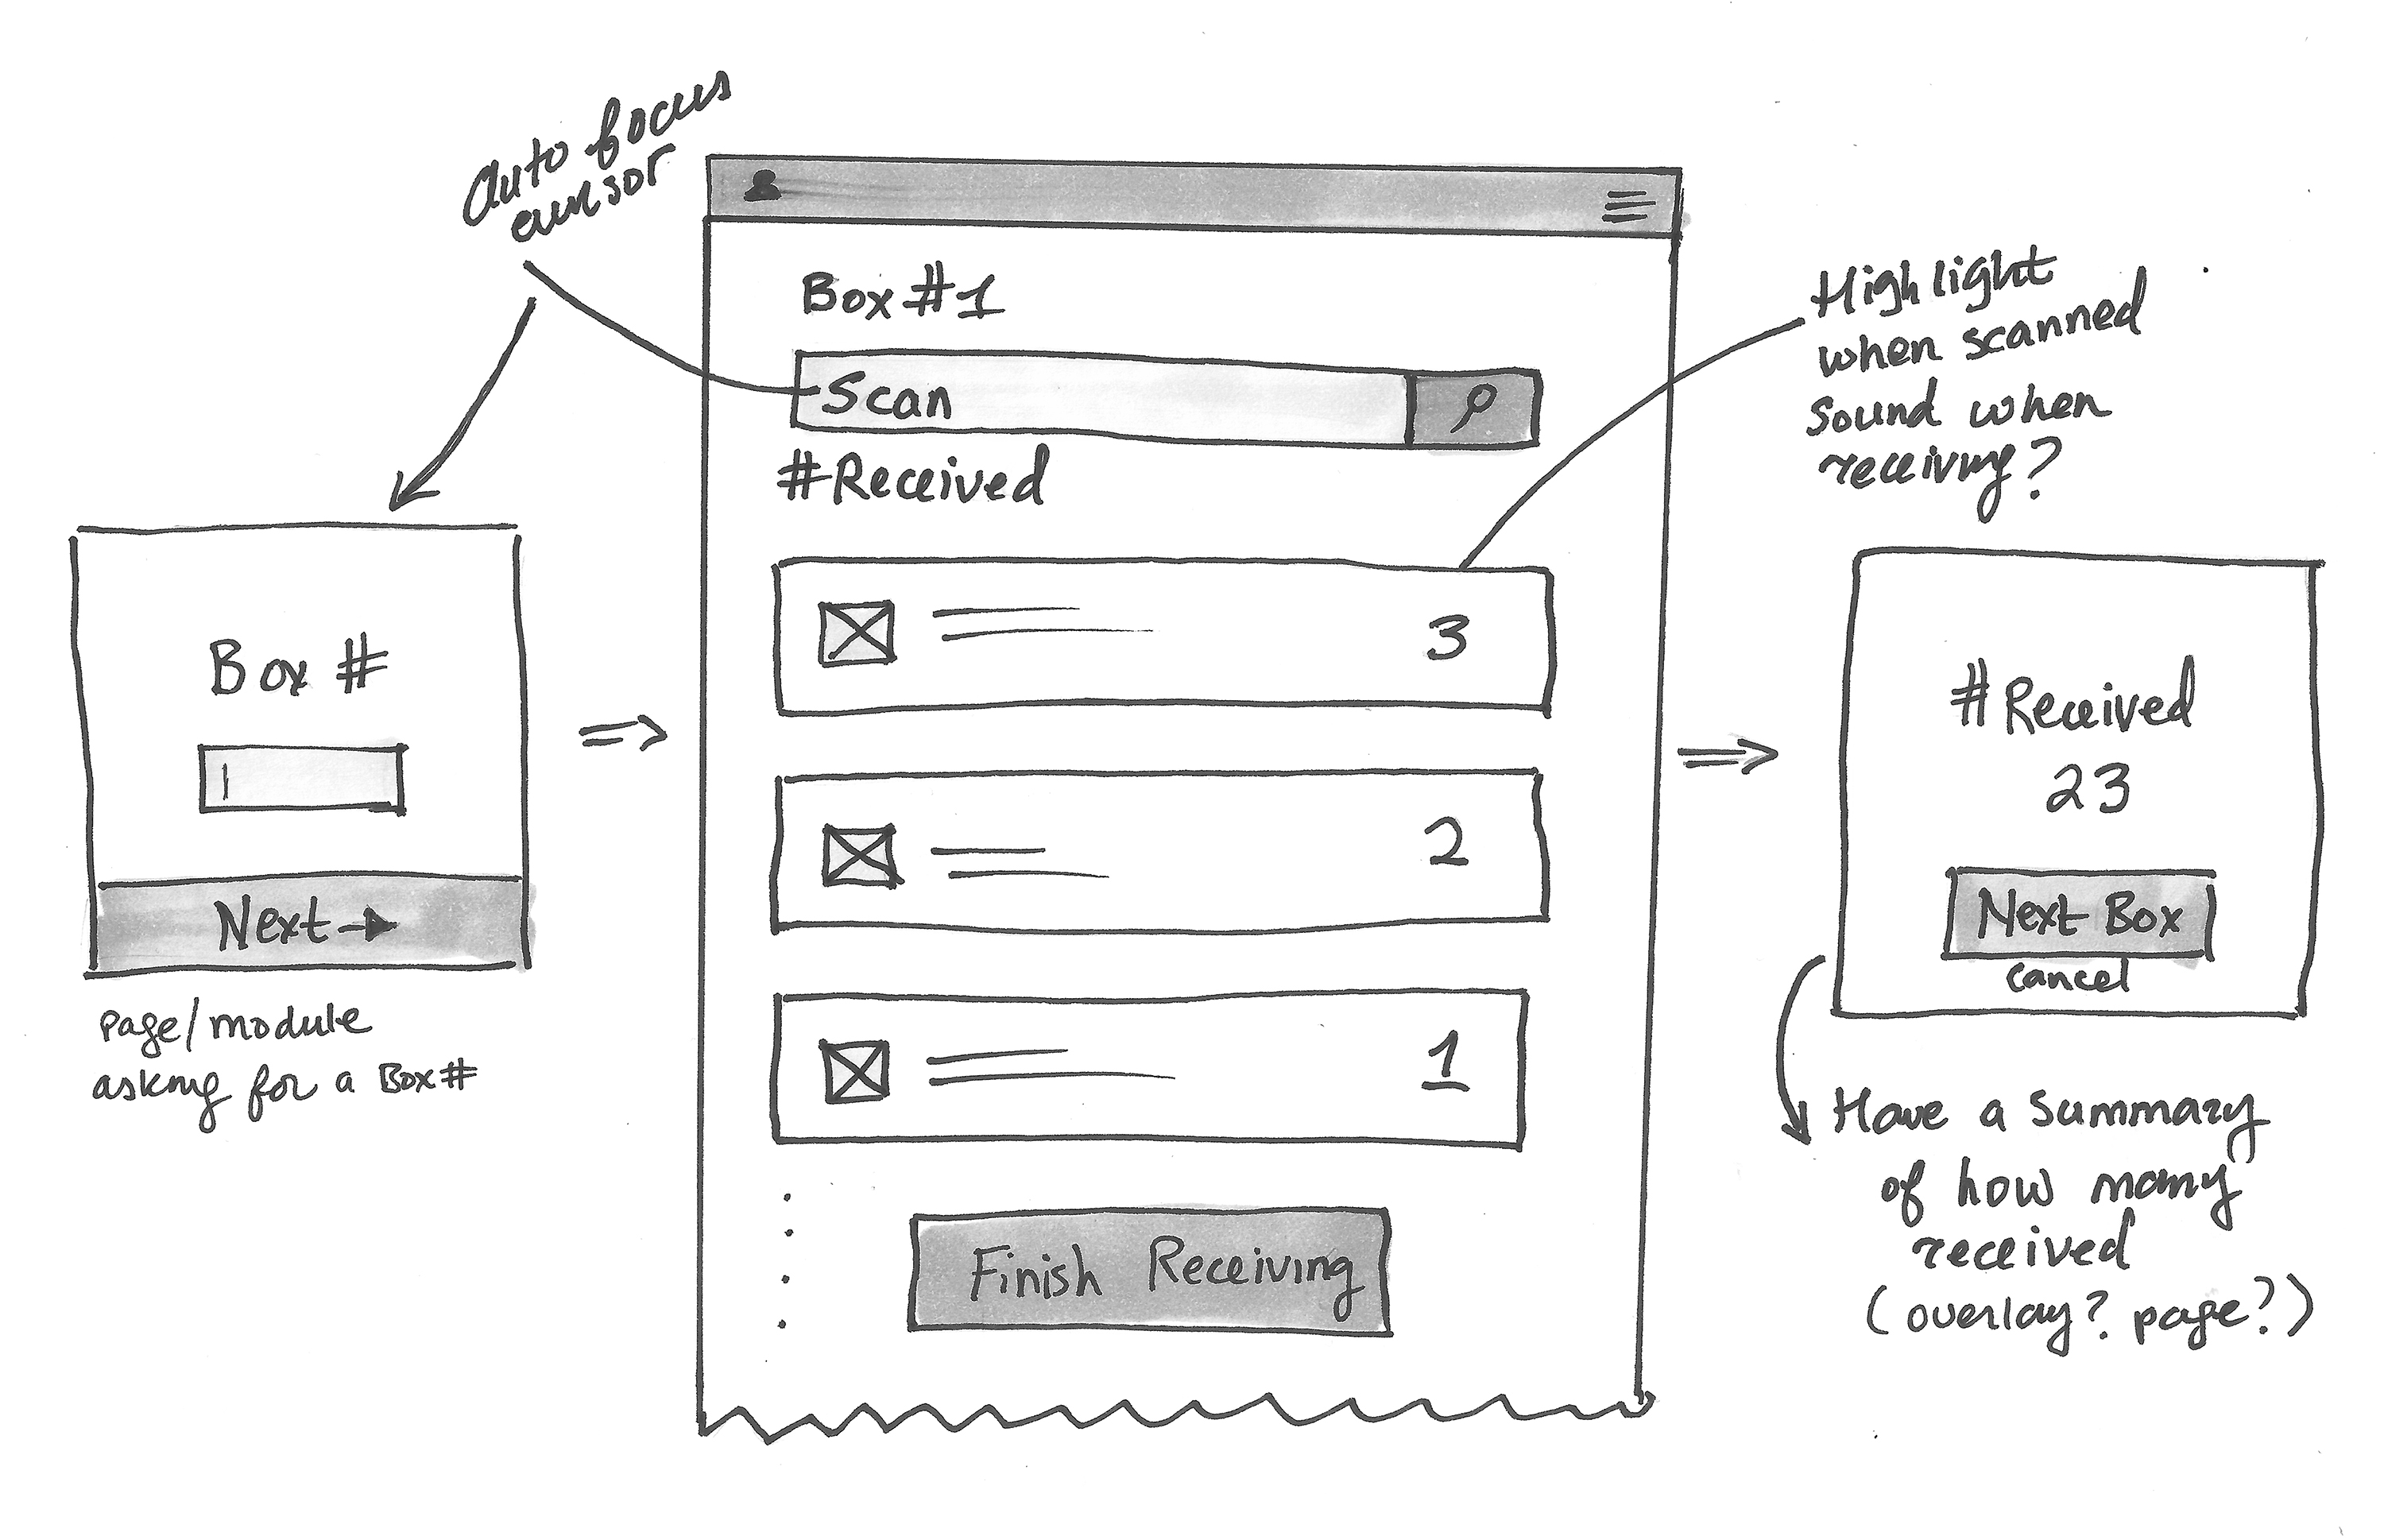 Auto focus
cursor
Box #
Next
page/module
asking for a Box#
Box #1
Scan
#Received
3
2
1
Finish Receiving
Highlight
when scanned
sound when
receiving?
#Received
23
Next Box
cancel
Have a summary
of how many
received
(overlay? page?)